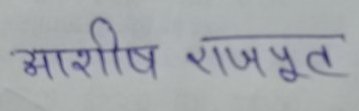 आशीष राजपूत